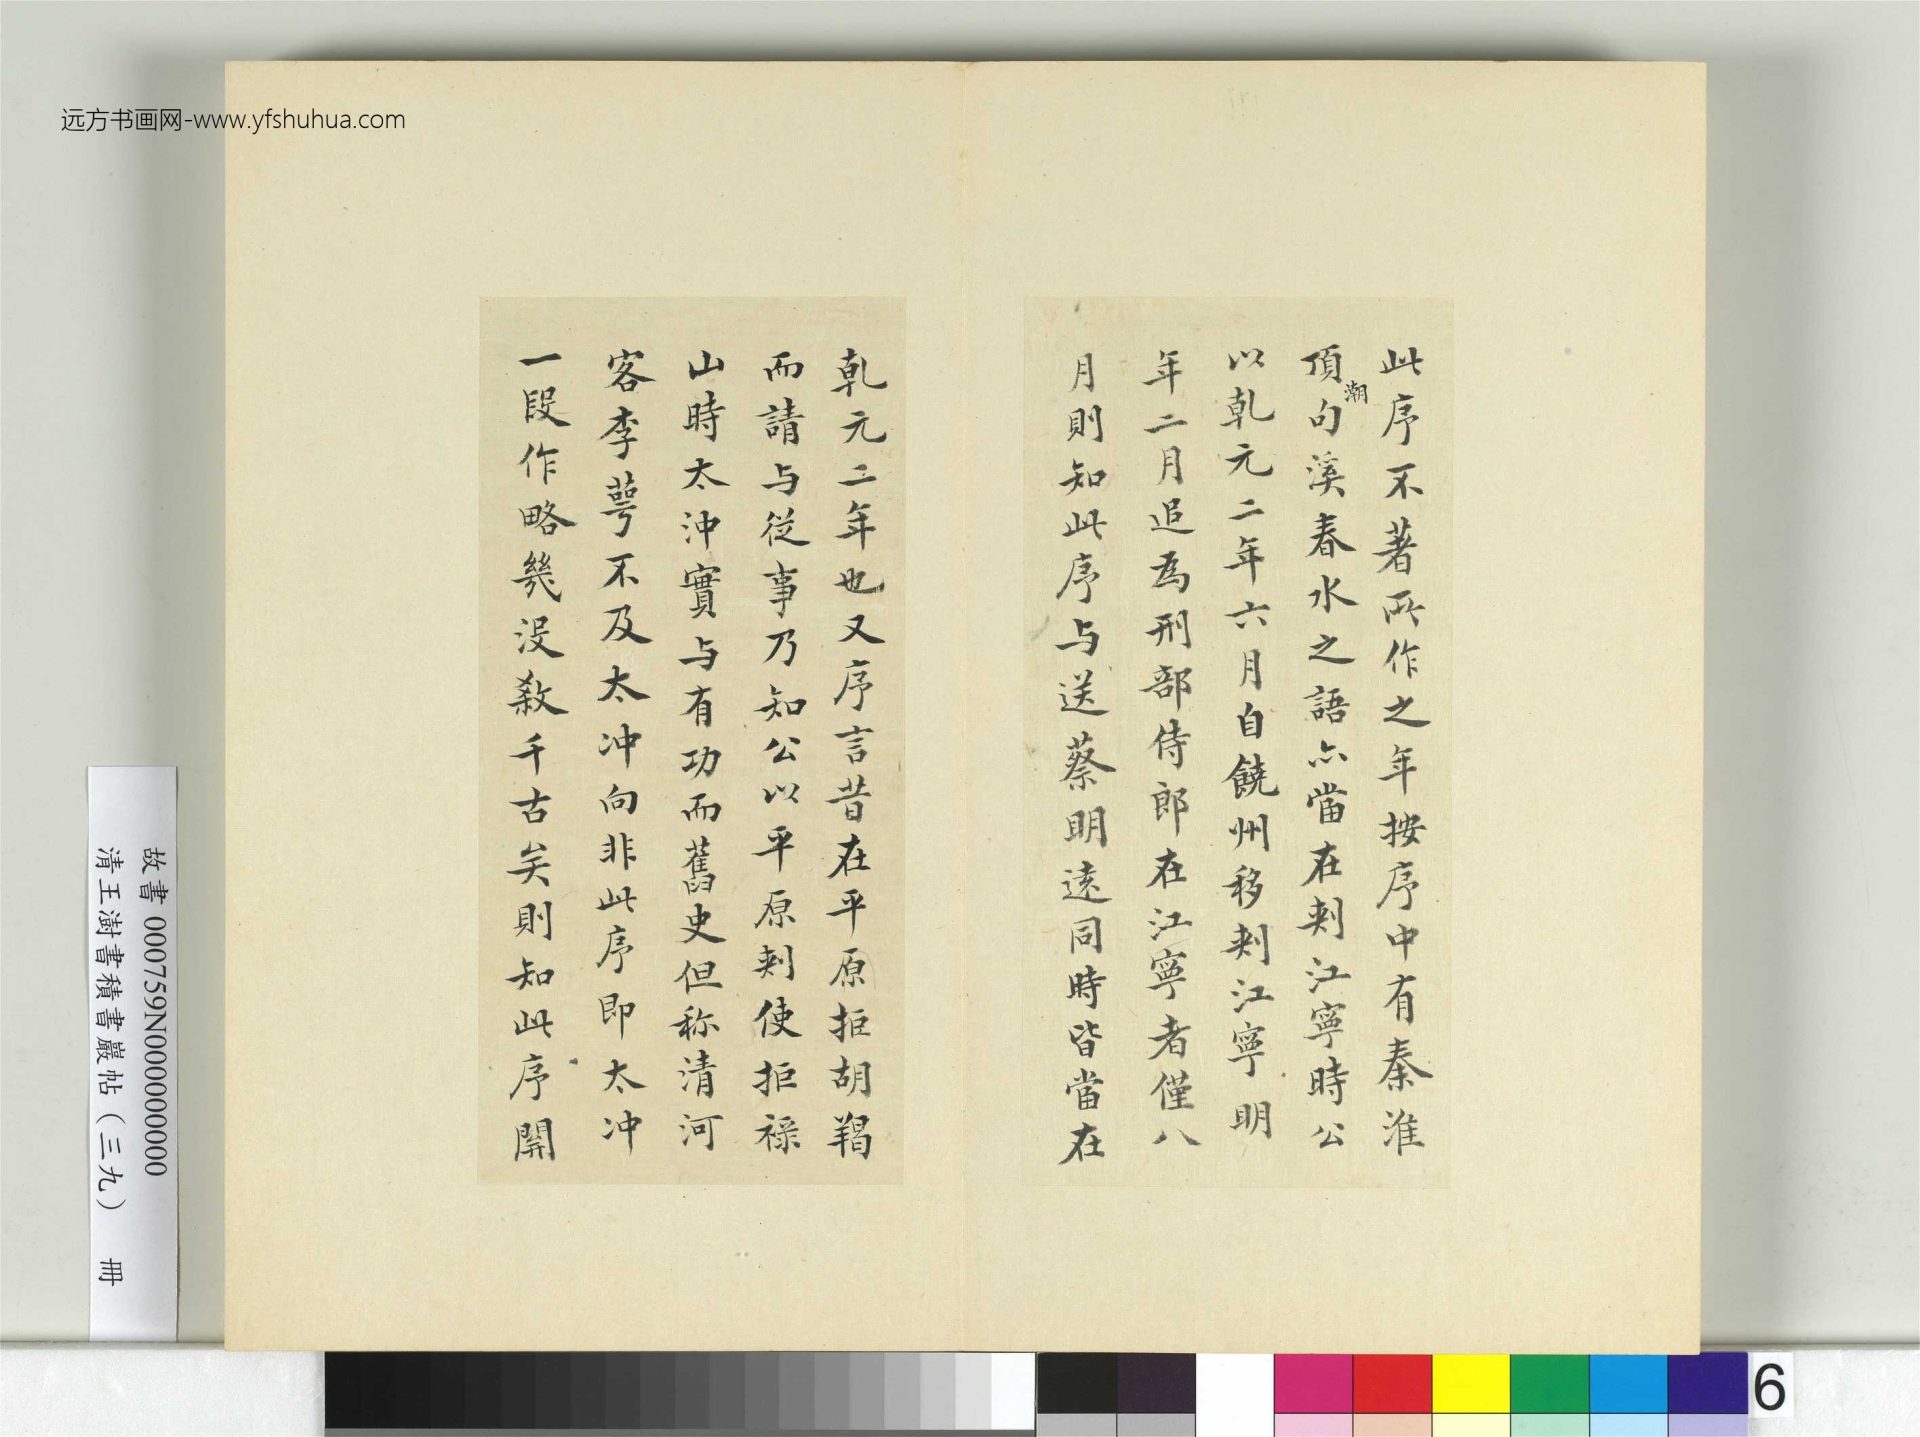 远方书画网-www.yfshuhua.com
此序不著所作之年按序中有秦淮
潮
頂句溪春水之語亦當在刺江寧時公
以乾元二年六月自饒州移刺江寧明
年二月追為刑部侍郎在江寧者僅八
月則知此序与送蔡明遠同時皆當在
乾元二年也又序言昔在平原拒胡羯
而請与從事乃知公以平原刺使拒祿
山時太沖實与有功而舊史但称清河
客李萼不及太沖向非此序即太沖
一段作略幾没殺千古矣則知此序開
故書 000759N000000000
清王澍書積書巖帖（三九） 冊
6